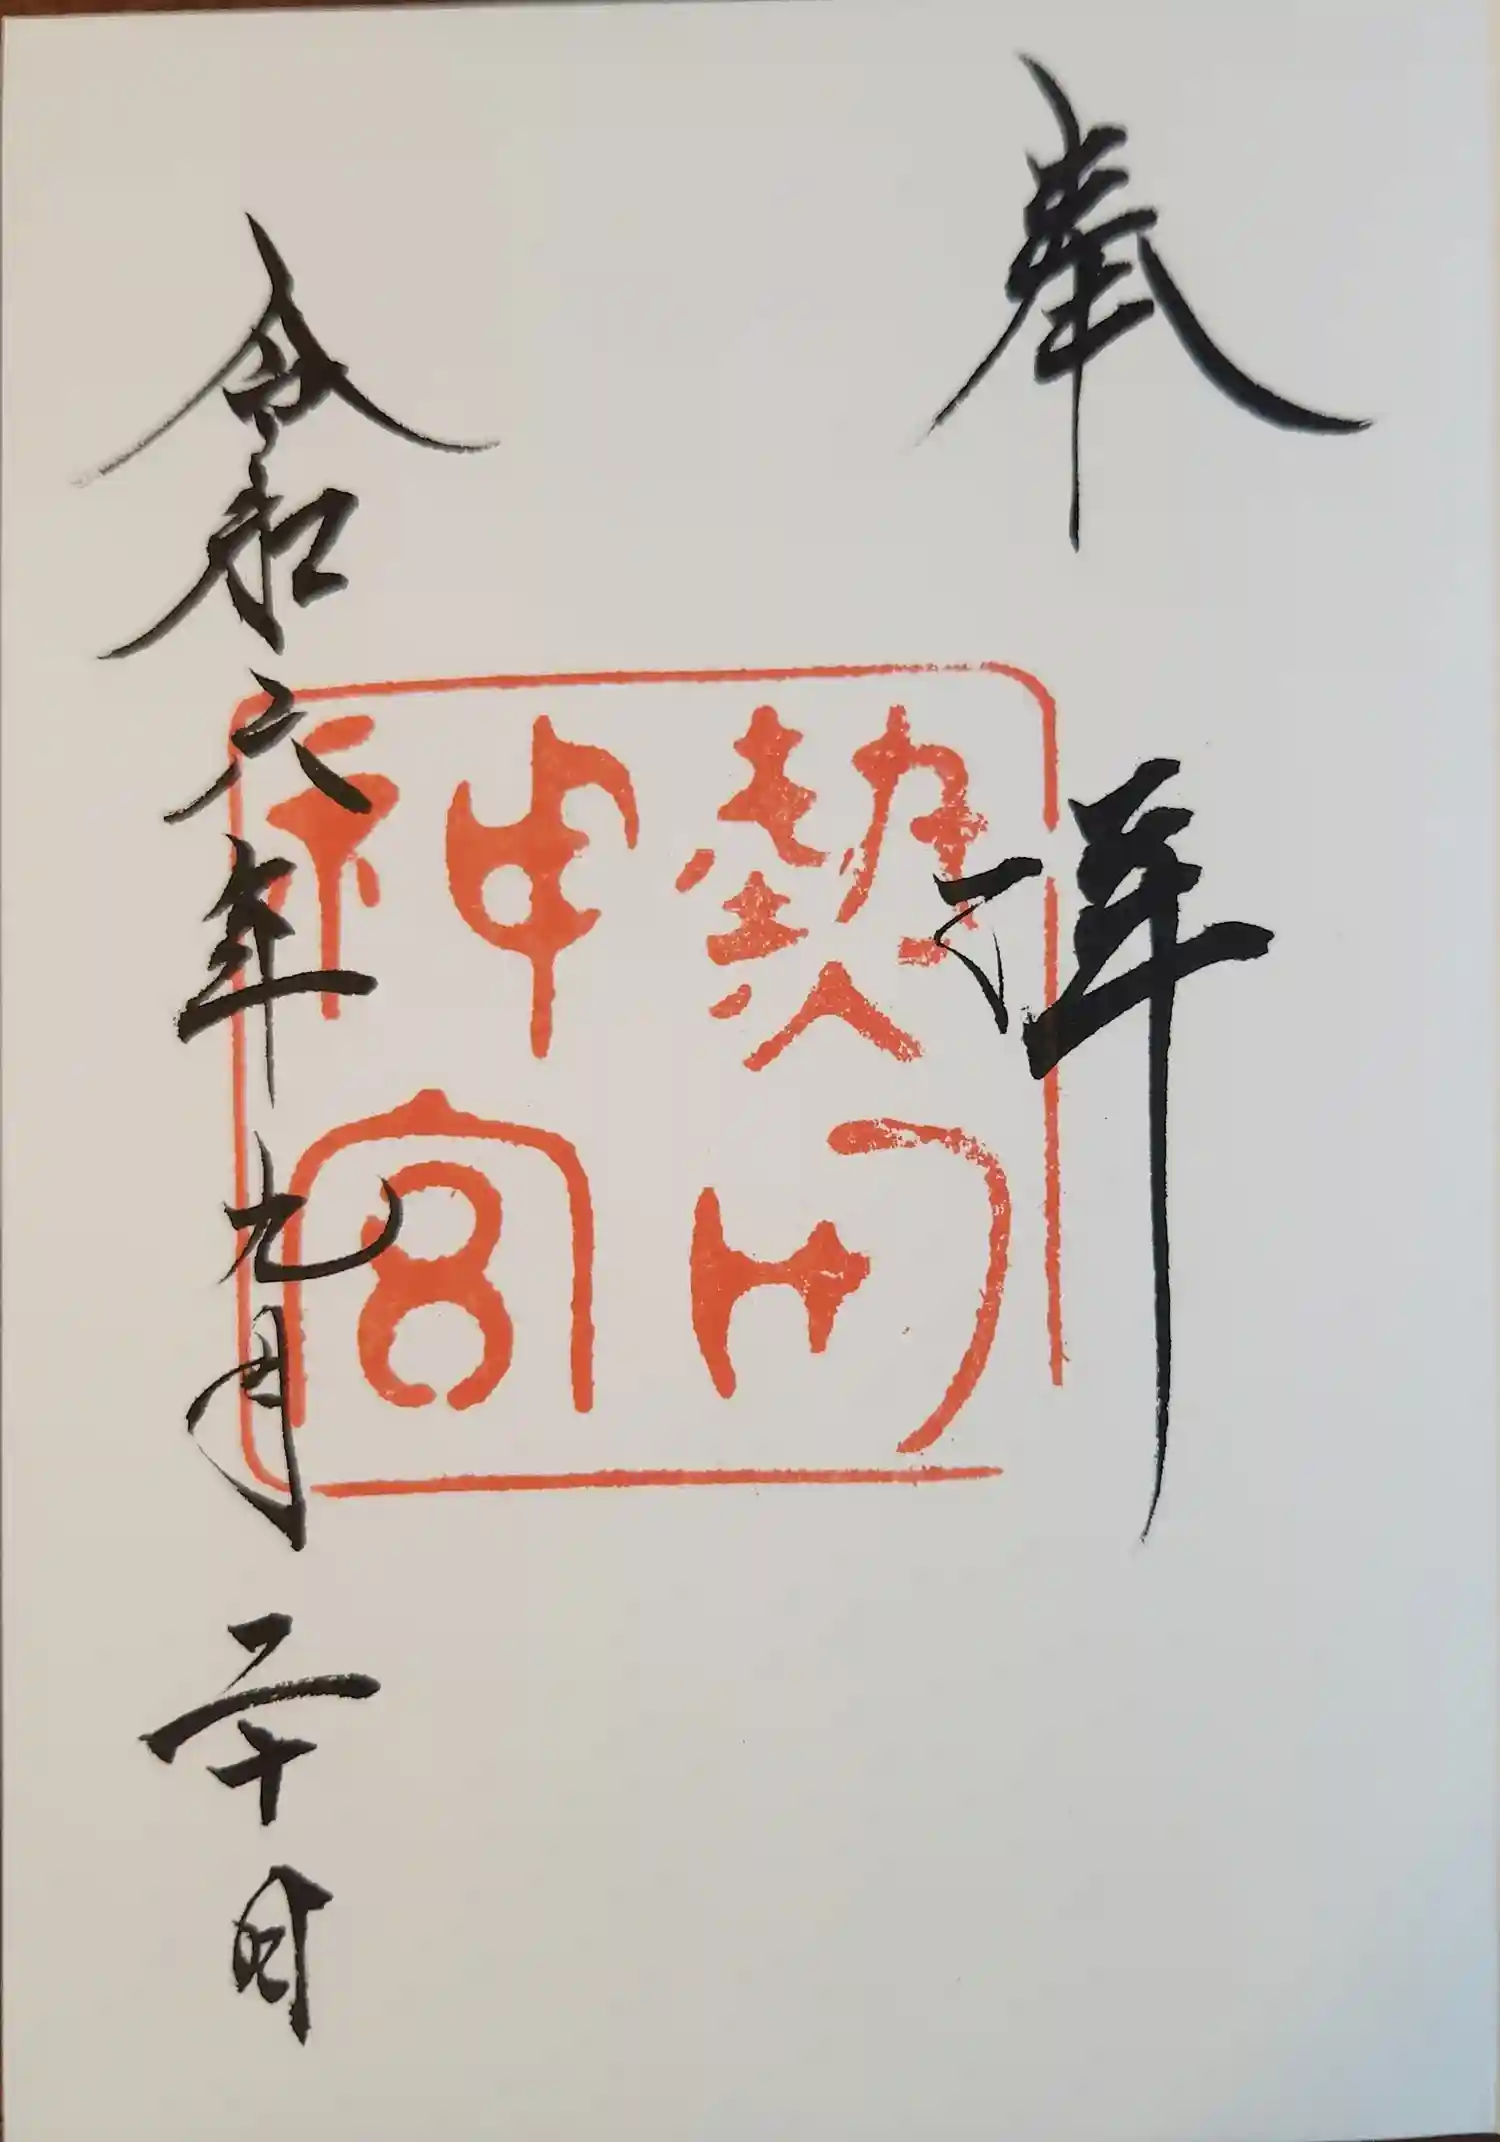 奉拝
熱田神宮
令和六年九月二十日